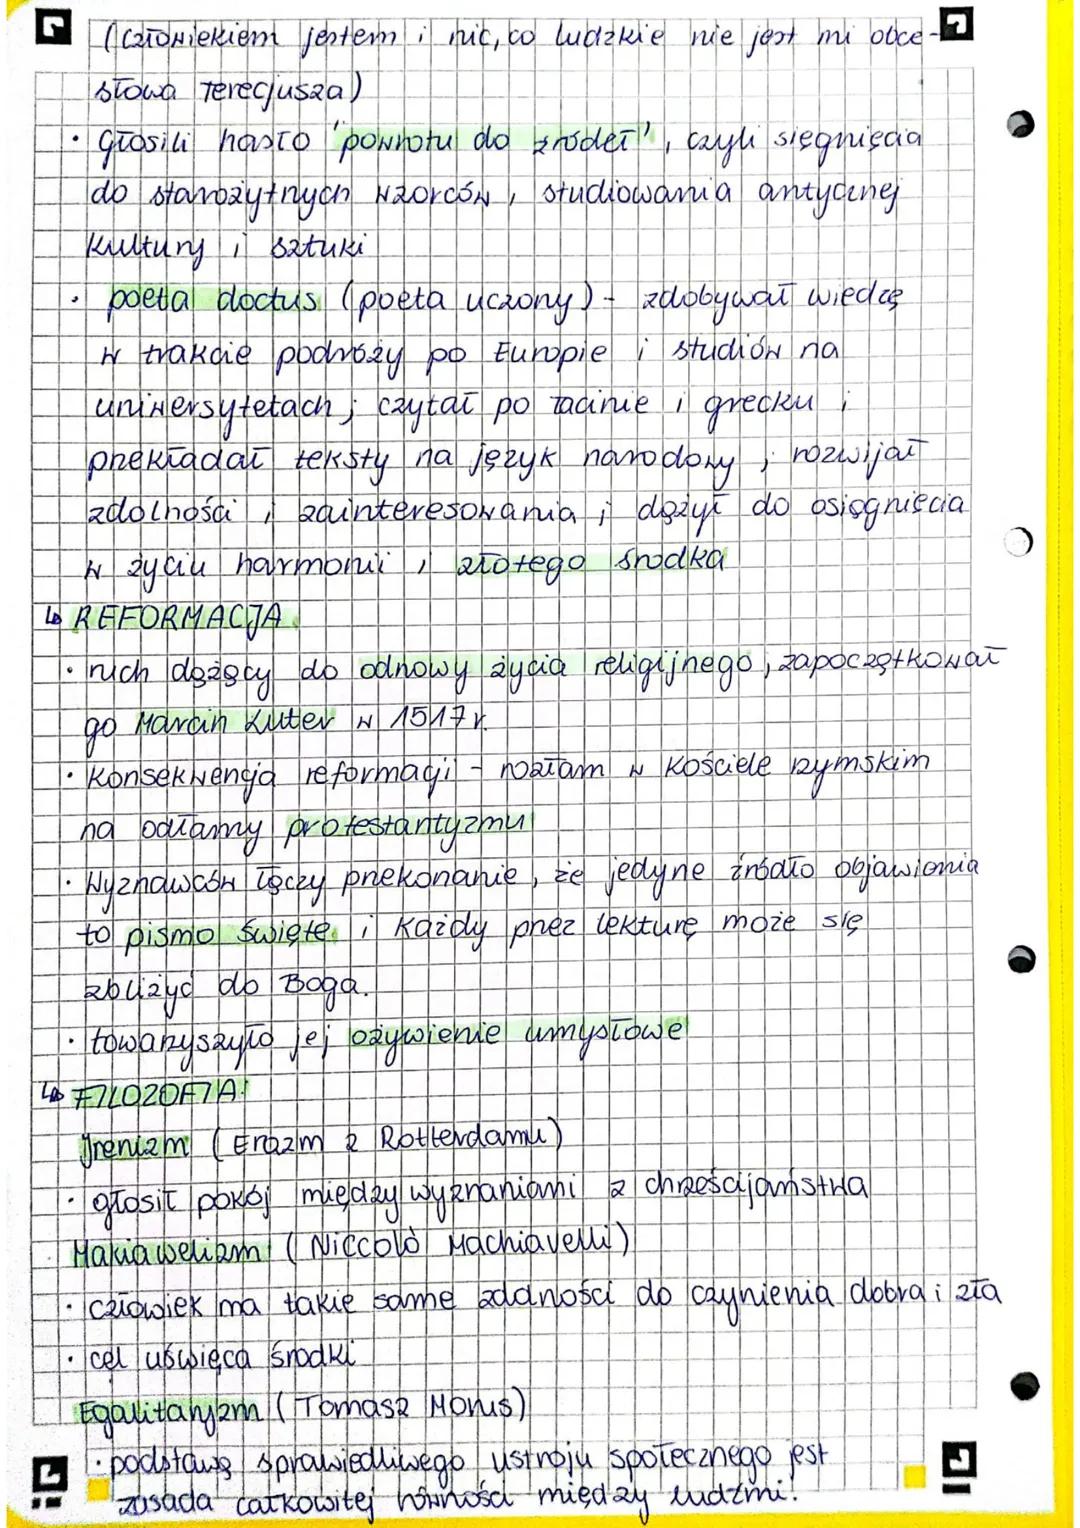 (człowiekiem jestem i nic, co ludzkie nie jest mi obce -
słowa Terecjusza)
· głosili hasło 'powrotu do źródeł', czyli sięgnięcia
do starożytnych wzorców, studiowania antycznej
kultury i sztuki
· poeta doctus (poeta uczony) - zdobywał wiedzę
w trakcie podróży po Europie i studiów na
uniwersytetach; czytał po łacinie i grecku i
przekładał teksty na język narodowy; rozwijał
zdolności i zainteresowania; dążył do osięgnięcia
w życiu harmonii i złotego środka
↳ REFORMACJA
· ruch dążący do odnowy życia religijnego, zapoczątkował
go Marcin Luter w 1517 r.
· Konsekwencja reformacji - rozłam w Kościele rzymskim
na odłamy protestantyzmu
· Wyznawców łączy przekonanie, że jedyne źródło objawienia
to pismo święte i każdy przez lekturę może się
zbliżyć do Boga.
· towarzyszyło jej ożywienie umysłowe
↳ FILOZOFIA:
Irenizm (Erazm z Rotterdamu)
· głosił pokój między wyznaniami z chrześcijaństwa
Makiawelizm (Niccolò Machiavelli)
· człowiek ma takie same zdolności do czynienia dobra i zła
· cel uświęca środki
Egalitaryzm (Tomasz Morus)
· podstawą sprawiedliwego ustroju społecznego jest
zasada całkowitej równości między ludźmi!